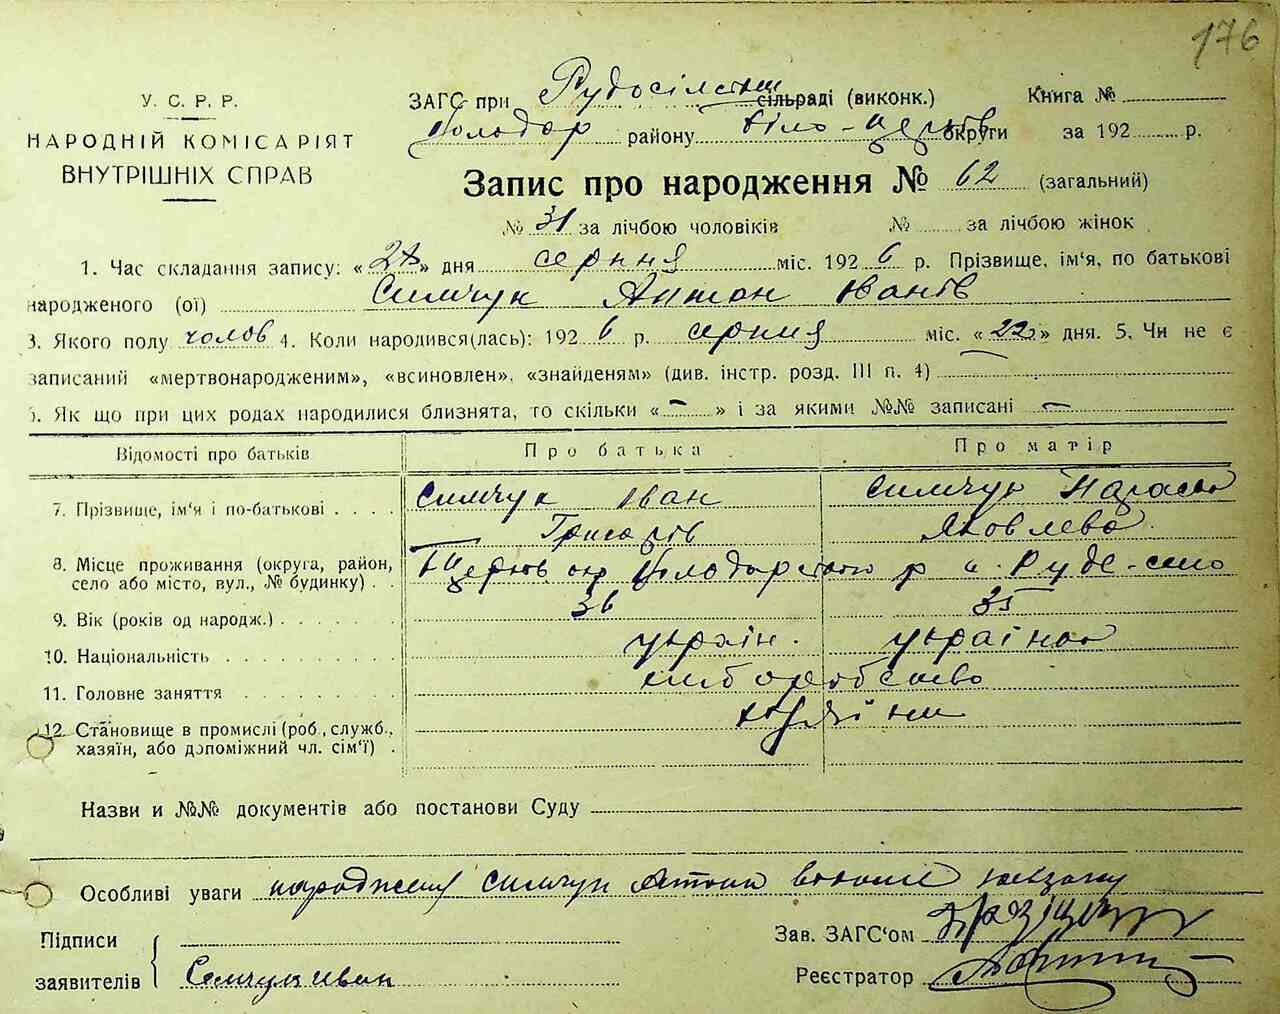 176
У. С. Р. Р.
НАРОДНІЙ КОМІСАРІЯТ
ВНУТРІШНІХ СПРАВ
ЗАГС при Рудосільськ сільраді (виконк.) Книга №
Володар району Біло-церків округи за 192 р.
Запис про народження № 62 (загальний)
№ 31 за лічбою чоловіків № за лічбою жінок
1. Час складання запису: « 28 » дня серпня міс. 1926 р. Прізвище, ім'я, по батькові
народженого (ої) Симчук Антон Іванів
3. Якого полу чолов 4. Коли народився(лась): 1926 р. серпня міс. « 22 » дня. 5. Чи не є
записаний «мертвонародженим», «всиновлен», «знайденям» (див. інстр. розд. III п. 4) —
6. Як що при цих родах народилися близнята, то скільки « – » і за якими №№ записані –
Відомості про батьків Про батька Про матір
7. Прізвище, ім'я і по-батькові Симчук Іван Симчук Параска
Яковлева
8. Місце проживання (округа, район, Бцерків окр Володарського р с. Руде-село
село або місто, вул., № будинку)
9. Вік (років од народж.) 36 35
10. Національність україн. українка
11. Головне заняття хліборобство
12. Становище в промислі (роб., служб.,
хазяїн, або допоміжний чл. сім'ї)
Назви и №№ документів або постанови Суду
Особливі уваги народження Симчук Антон
Підписи Зав. ЗАГС'ом
заявителів Семчук Иван Реєстратор